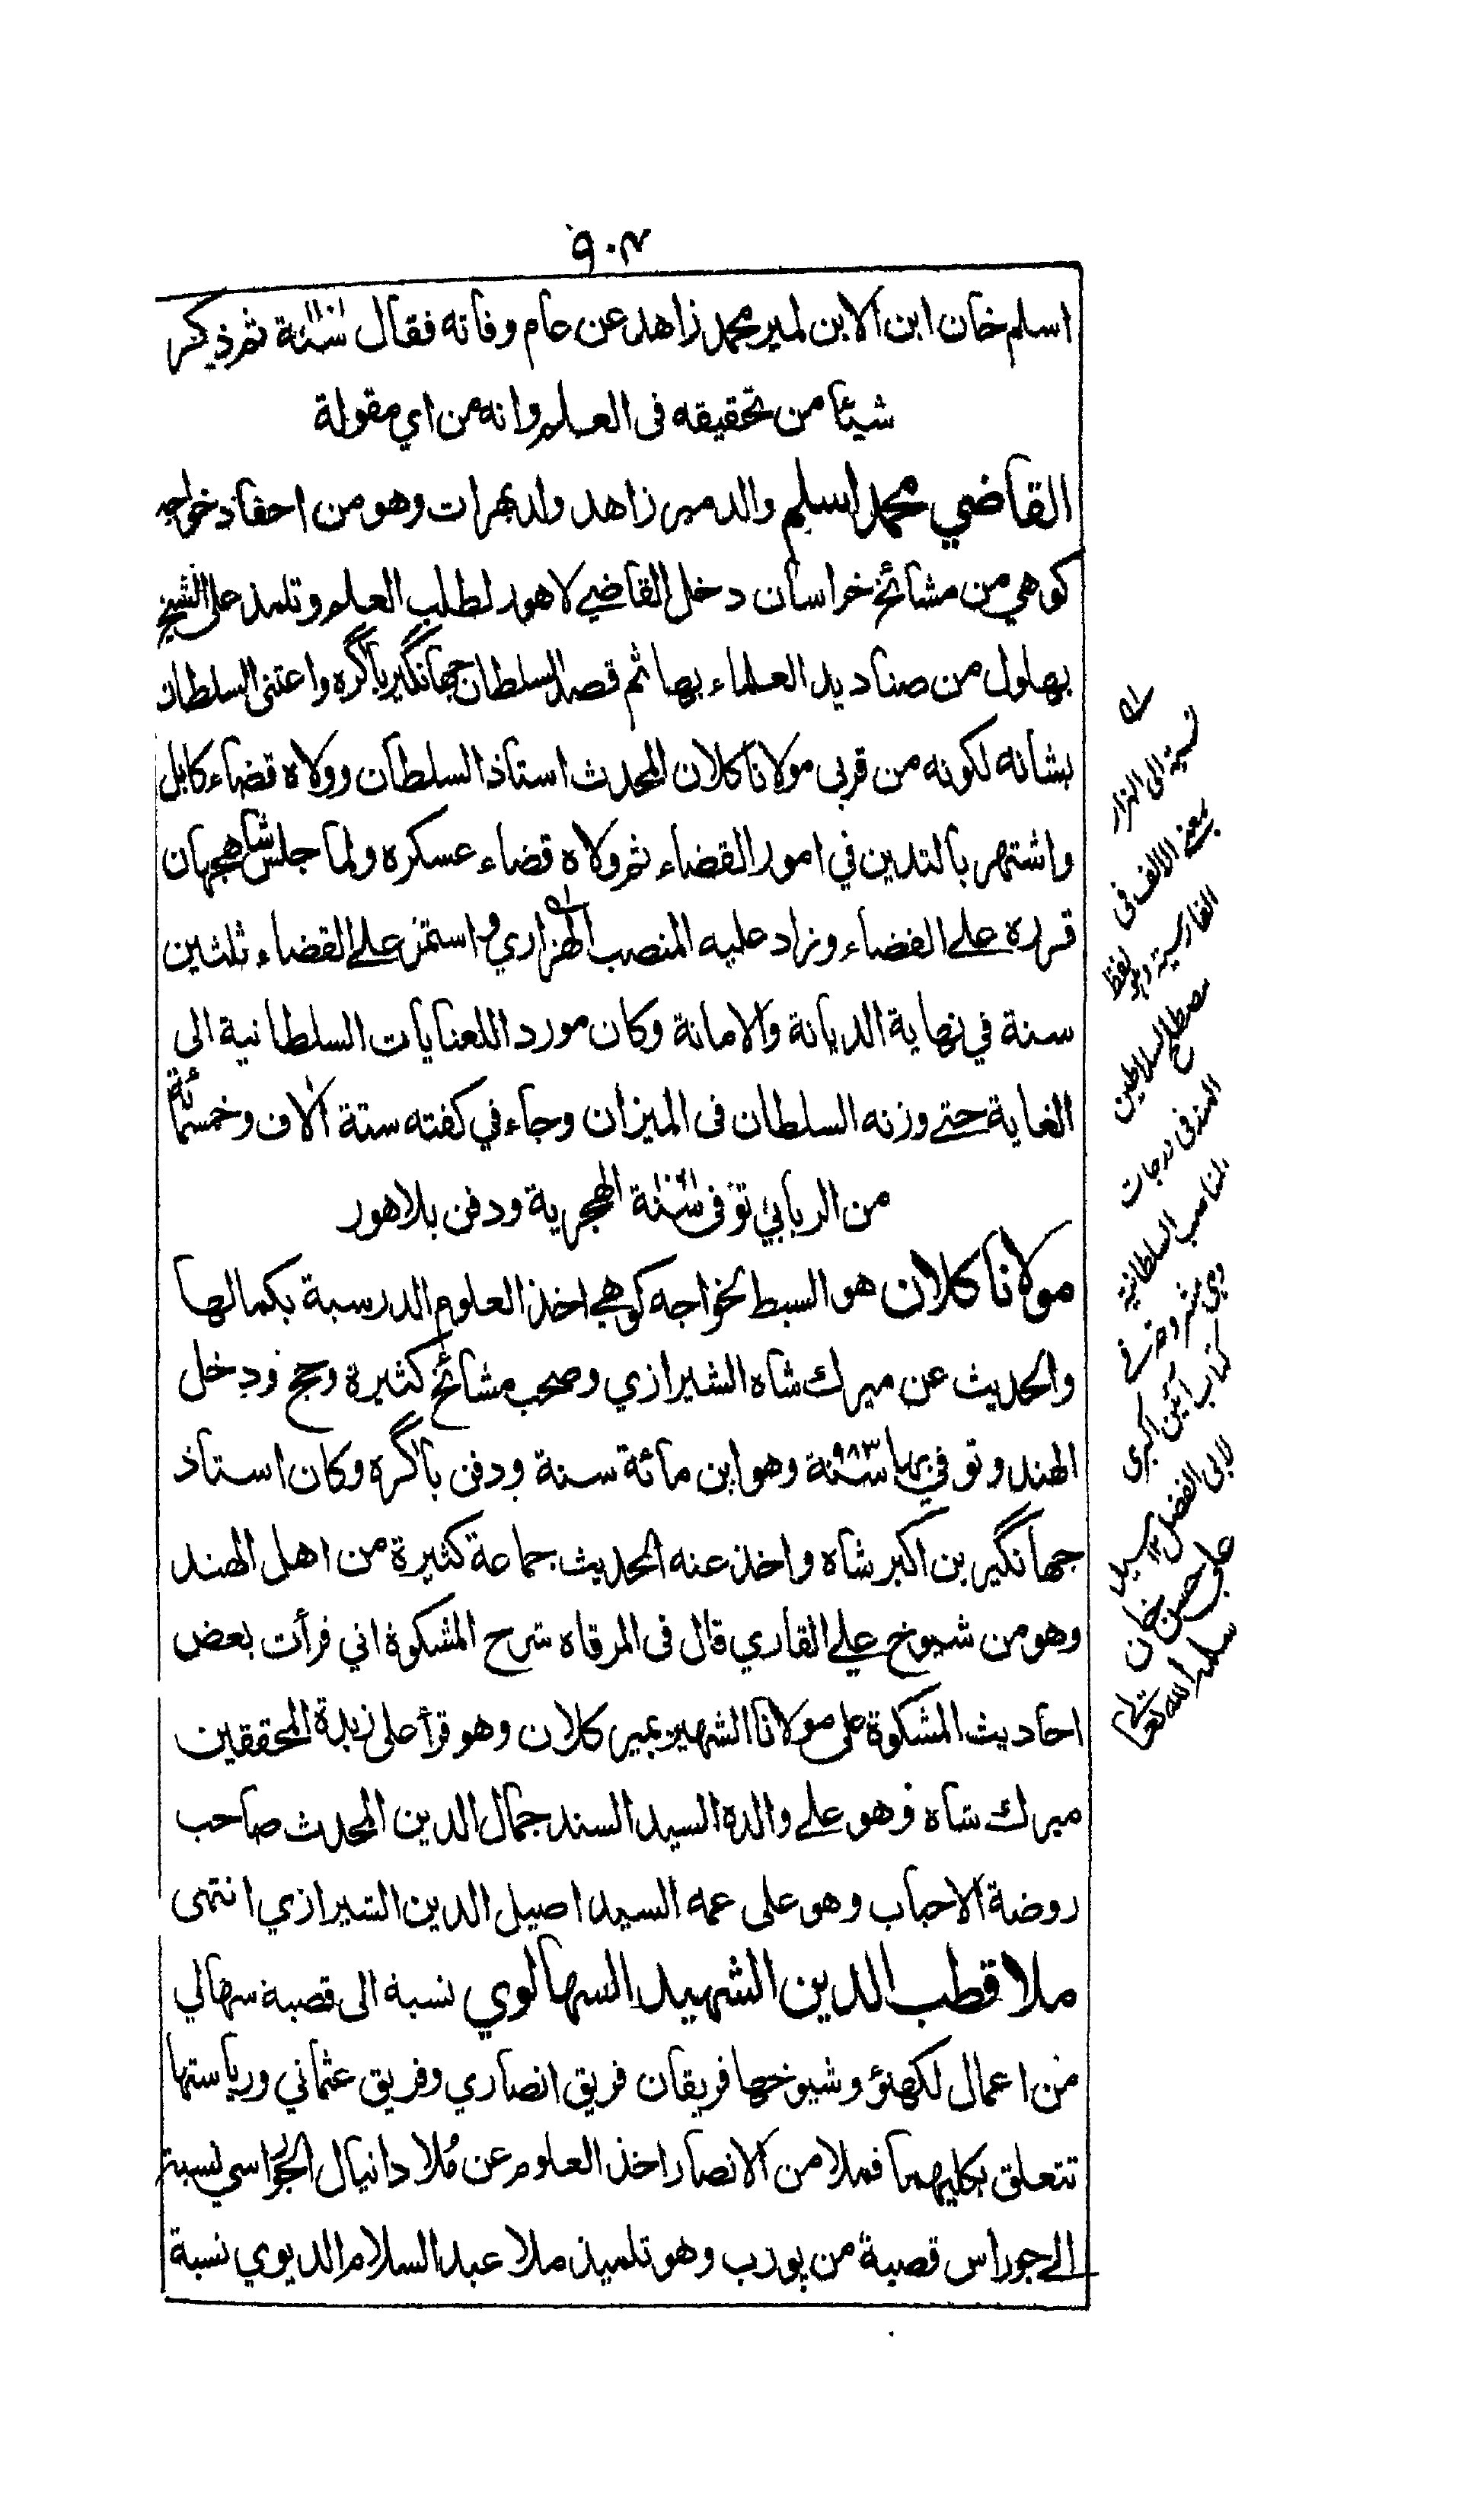 ٩٠٣
اسلم خان ابن الابن لمير محمد زاهد عن عام وفاته فقال سنة ثم ذكر
شيئا من تحقيقه فى العلم وانه من اي مقولة
القاضي محمد اسلم والد مير زاهد ولد بهرات وهو من احفاد خواجه
كوهي من مشائخ خراسان دخل القاضي لاهور لطلب العلم وتلمذ على الشيخ
بهلول من صناديد العلماء بها ثم قصد السلطان جهانگير باگره واعتنى السلطان
بشانه لكونه من قربى مولانا كلان المحدث استاذ السلطان وولاه قضاء كابل
واشتهر بالتدين في امور القضاء ثم ولاه قضاء عسكره ولما جلس شاهجهان
قرره على القضاء وزاد عليه المنصب الهزاري واستمر على القضاء ثلثين
سنة في نهاية الديانة والامانة وكان مورد اللعنايات السلطانية الى
الغاية حتى وزنه السلطان فى الميزان وجاء في كفته ستة الاف وخمسمائة
من الربابي توفى سنة الهجرية ودفن بلاهور
مولانا كلان هو السبط لخواجه كوهي اخذ العلوم الدرسية بكمالها
والحديث عن ميرك شاه الشيرازي وصحب مشائخ كثيرة وحج ودخل
الهند وتوفي بها سنة ٩٨٣ وهو ابن مائة سنة ودفن باگره وكان استاذ
جهانگير بن اكبر شاه واخذ عنه الحديث جماعة كثيرة من اهل الهند
وهو من شيوخ علي القاري قال فى المرقاه شرح المشكوة اني قرأت بعض
احاديث المشكوة على مولانا الشهير بمير كلان وهو قرأ على زبدة المحققين
ميرك شاه وهو على والده السيد السند جمال الدين المحدث صاحب
روضة الاحباب وهو على عمه السيد اصيل الدين الشيرازي انتهى
ملا قطب الدين الشهيد السهالوي نسبة الى قصبة سهالي
من اعمال لكهنؤ وشيوخها فريقان فريق انصاري وفريق عثماني ورياستها
تتعلق بكليهما فملا من الانصار اخذ العلوم عن مُلا دانيال الجوراسي نسبة
الى جوراس قصبة من پورب وهو تلميذ ملا عبد السلام الديوي نسبة
نسبة الى الهزار
بمعنى الالف فى
الفارسية وهو لفظ
مصطلح السلاطين
الهند فى درجات
المناصب السلطانية
وهى مشروحة فى
كتاب آئين اكبرى
لابى الفضل سيد
على حسن خان
سلمه الله تعالى